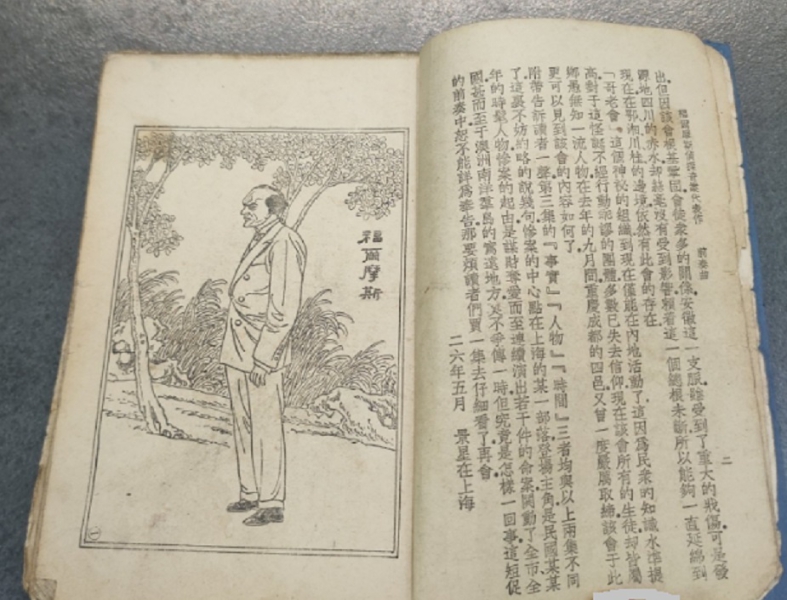 福爾摩斯偵探奇案代表作 前奏曲 二
出.但因該會根基鞏固.會徒衆多的關係.安徽這一支脈.雖受到了重大的戕傷.可是發
源地四川的赤水.却絲毫沒有受到影響.賴着這一個總根未斷.所以能夠一直延綿到
現在.在鄂湘川桂的邊境.依然有此會的存在.
「哥老會」.這個神秘的組織.到現在僅能在內地活動了.這因爲民衆的知識水準提
高.對于這怪誕不經行動乖謬的團體.多數已失去信仰.現在該會所有的生徒.却皆屬
鄉愚無知一流人物.在去年的九月間.重慶成都的四邑.又曾一度嚴厲取締該會.于此
更可以見到該會的內容如何了.
附帶告訴讀者一聲.第三集的『事實』『人物』『時間』三者均與以上兩集不同
了.這裏不妨約略的說幾句.慘案的中心點在上海的某一部落.登場主角是民國某某
年的時髦人物.慘案的起由是謀財奪愛.而至連續演出若干件的命案.閧動了全市.全
國.甚而至于澳洲南洋羣島的窵遠地方.莫不爭傳一時.但究竟是怎樣一回事.這短促
的前奏中.恕不能詳爲奉告.那要煩讀者們買一集去仔細看了.再會.
二六年五月 景星在上海
福爾摩斯
一